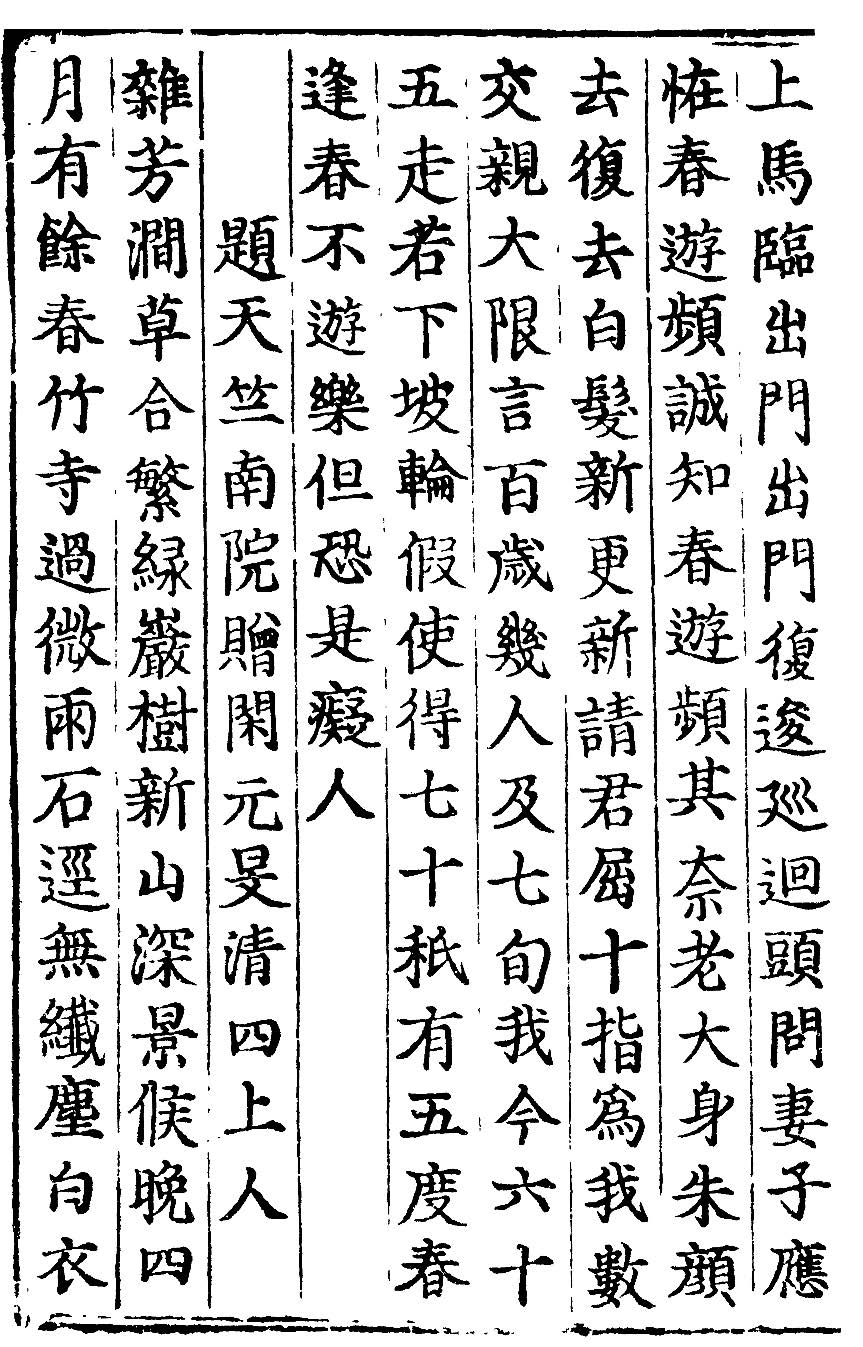 上馬臨出門出門復逡廵迴頭問妻子應
恠春遊頻誠知春遊頻其奈老大身朱顔
去復去白髮新更新請君屈十指爲我數
交親大限言百歳幾人及七旬我今六十
五走若下坡輪假使得七十秖有五度春
逢春不遊樂但恐是癡人
題天竺南院贈閑元旻清四上人
雜芳澗草合繁緑巖樹新山深景候晚四
月有餘春竹寺過微雨石逕無纖塵白衣